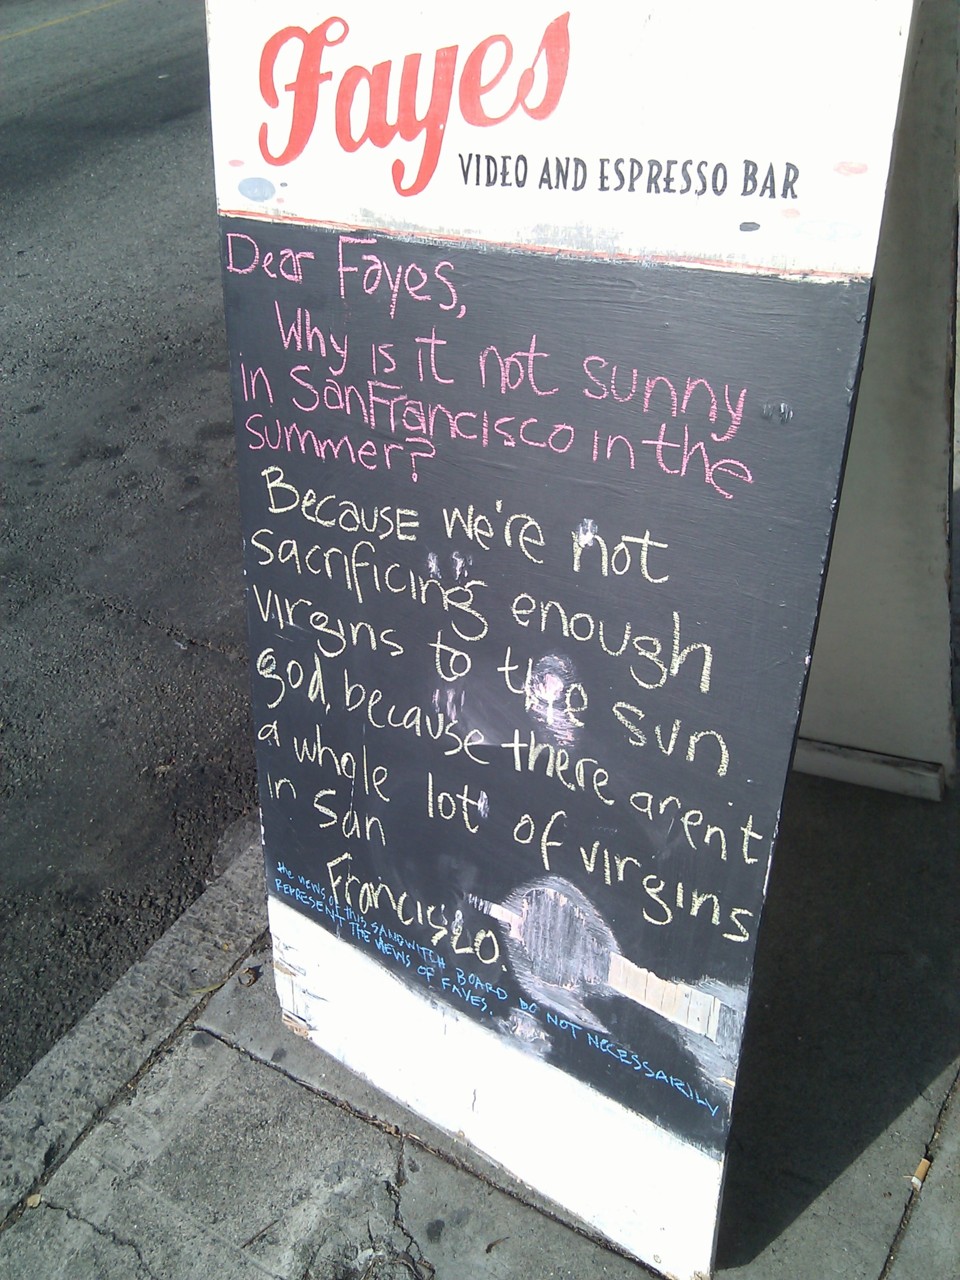 Fayes
VIDEO AND ESPRESSO BAR
Dear Fayes,
Why is it not sunny
in San Francisco in the
summer?
Because we're not
sacrificing enough
virgins to the sun
god, because there arent
a whole lot of virgins
in San
Francisco.
the views of this SANDWITCH BOARD DO NOT NECESSARILY
REPRESENT THE VIEWS OF FAYES.